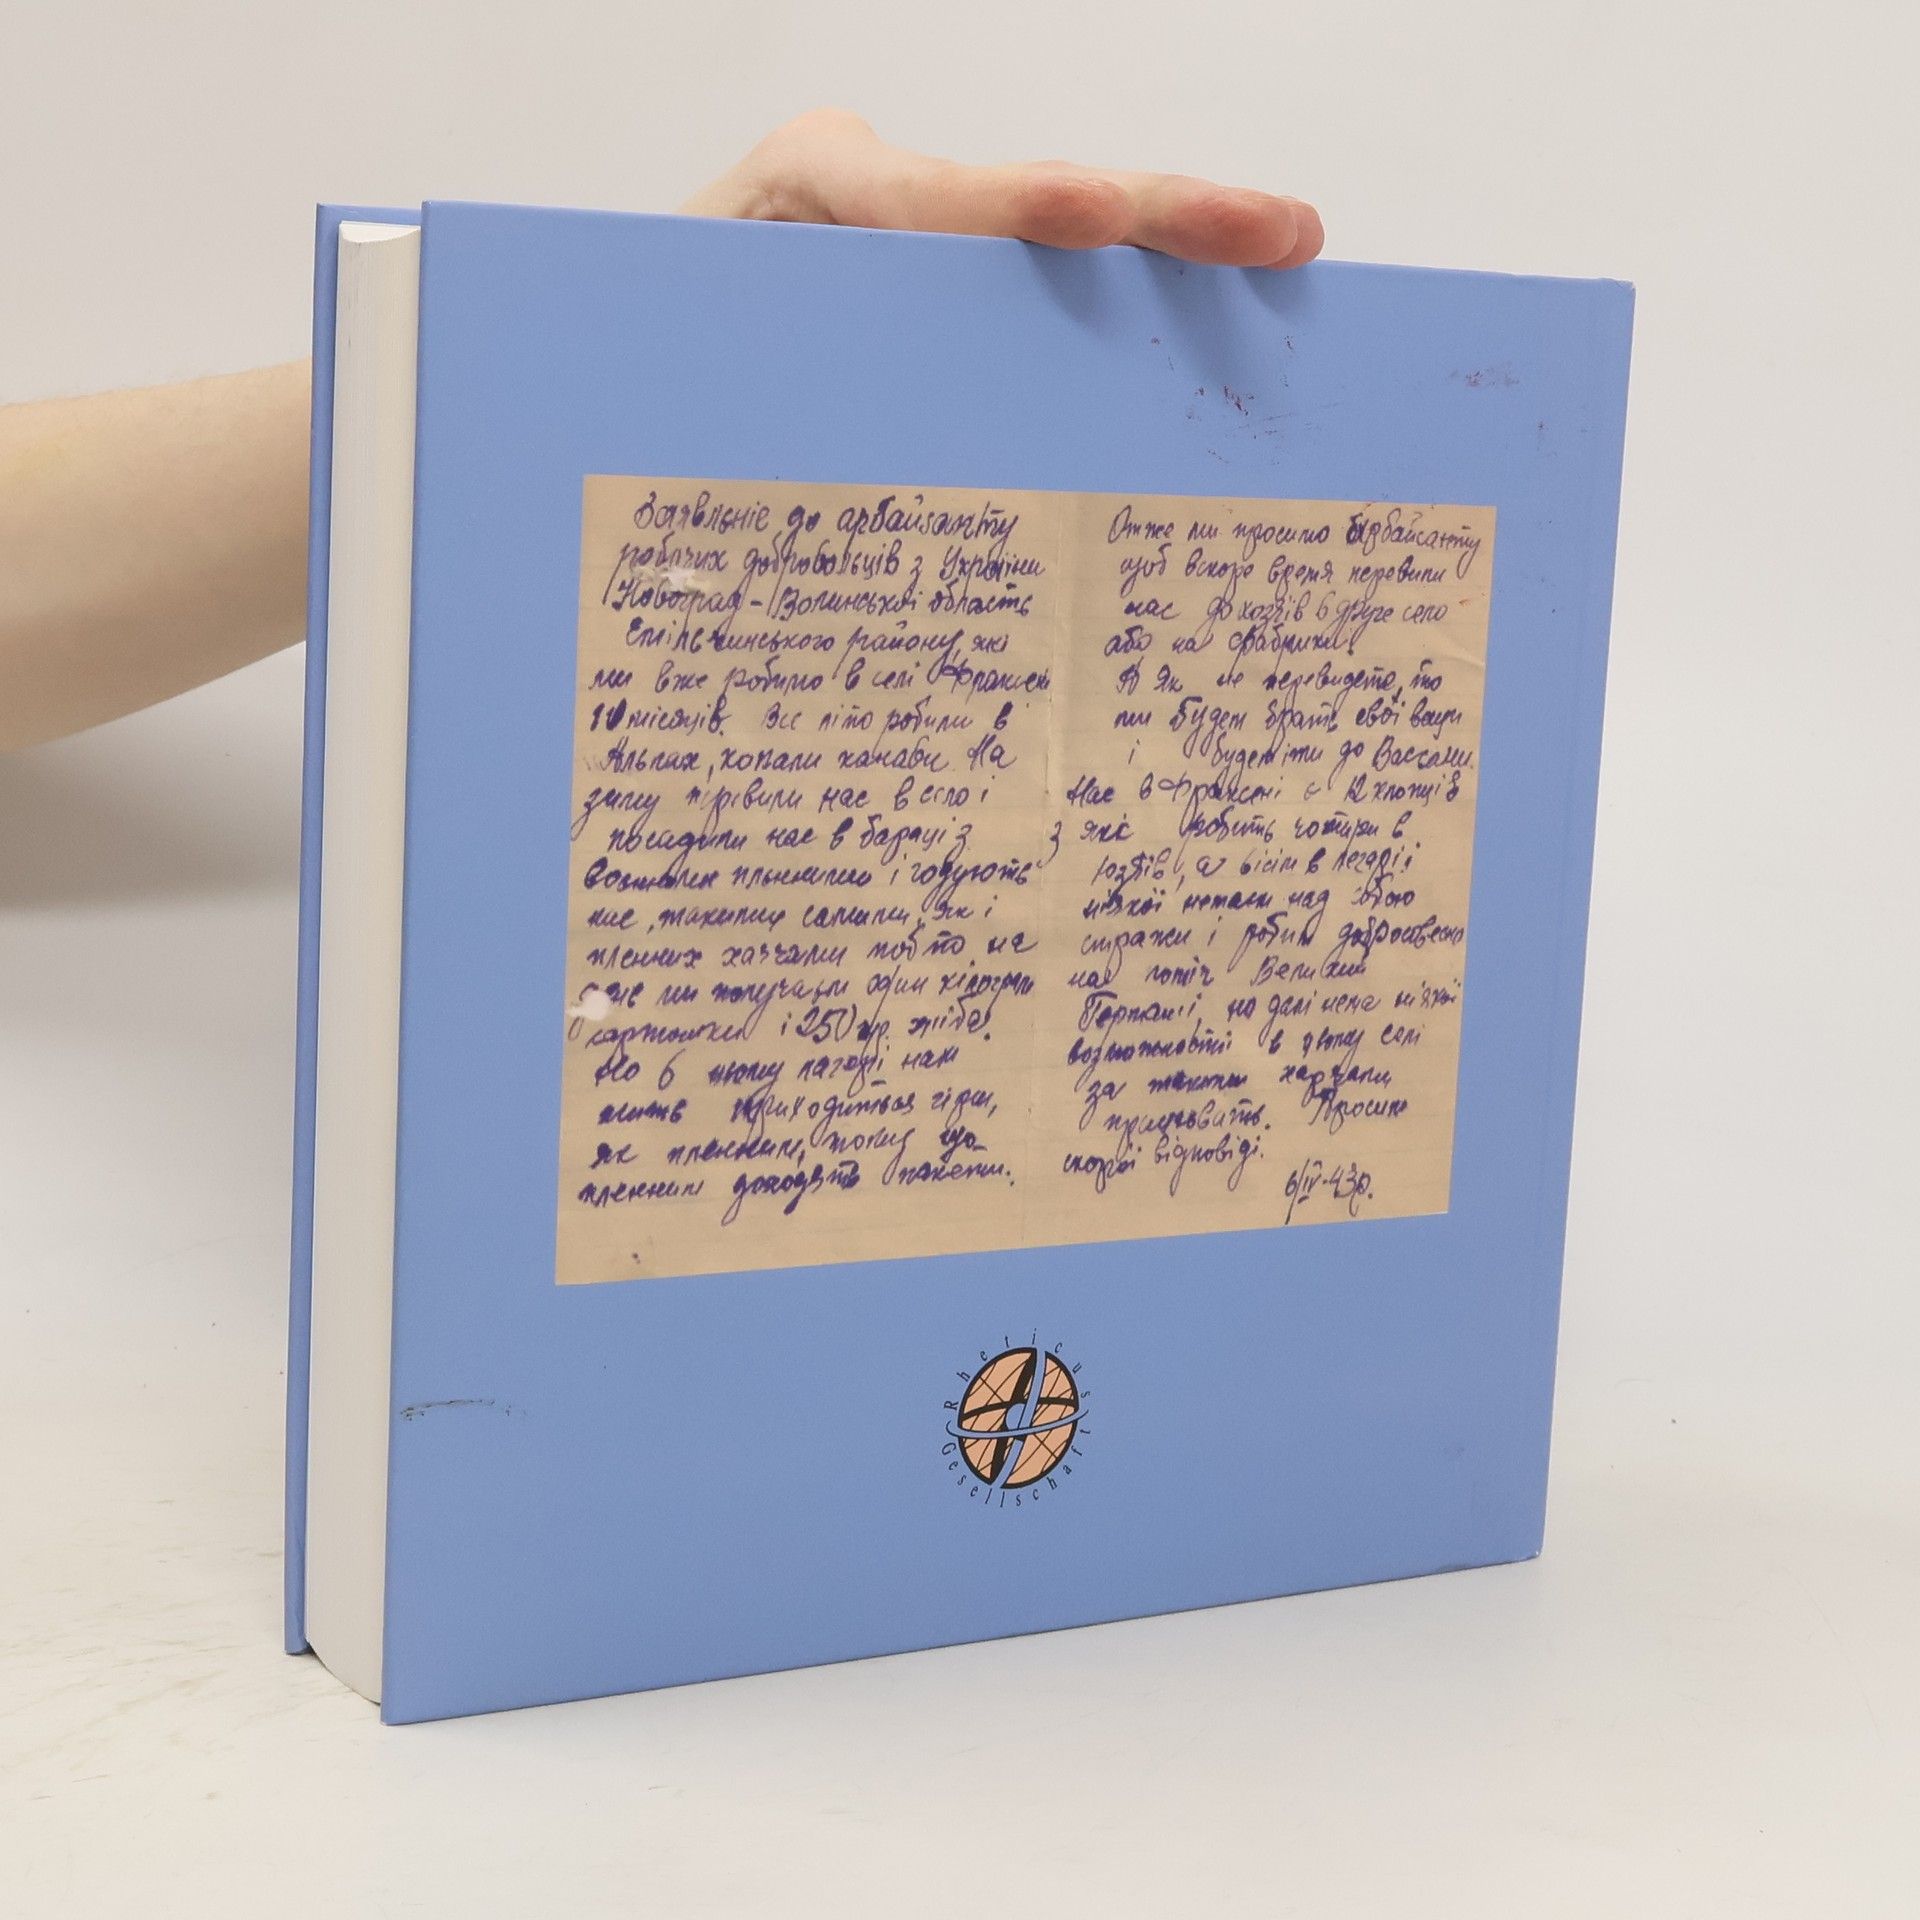 Заявлєніє до арбайзамту
робочих добровольців з України
Новоград-Волинської область
Емільчинського району, які
ми вже робимо в селі Фраксен
10 місяців. Всє літо робили в
Альпах, копали канави. На
зиму перевили нас в село і
посадили нас в бараці з
воєнними плєнними і годують
нас, такими самими, як і
плєнних харчами тобто на
ми получаєм один кілограм
картошки і 250 гр. хліба.
Но в цьому лагері нам
жить приходиться гірш,
як плєнним, тому що
плєнним доходять пакети.
Отже ми просимо арбайсамту
щоб вскоре время перевили
нас до хозяїв в друге село
або на фабрики.
А як не переведете, то
ми будем брать свої вещи
і будем іти до Вассами.
Нас в Фраксені є 12 хлопців
з які робить чотири в
хозяїв, а вісім в лагері і
ніякої немаєм над собою
стражи і робим добросовесно
на поміч Великій
Германії, но далі нема ніякої
возможності в цьому селі
за такими харчами
працювать. Просим
скорої відповіді.
6/IV-43р.
Rheticus
Gesellschaft